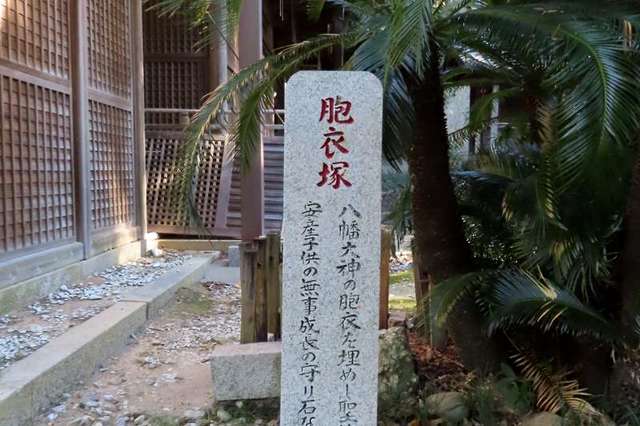 胞衣塚
八幡大神の胞衣を埋めし聖
安産子供の無事成長の守り石な